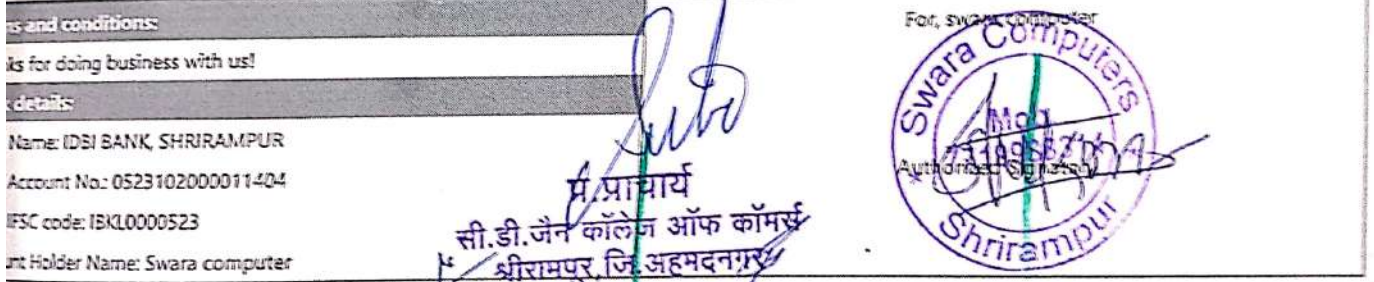 s and conditions:
ks for doing business with us!
details:
Name: IDBI BANK, SHRIRAMPUR
Account No.: 0523102000011404
IFSC code: IBKL0000523
nt Holder Name: Swara computer
प्र.प्राचार्य
सी.डी.जैन कॉलेज ऑफ कॉमर्स
श्रीरामपूर, जि.अहमदनगर
For, swara computer
Swara Computers
Mob
Authorised Signatory
Shrirampur